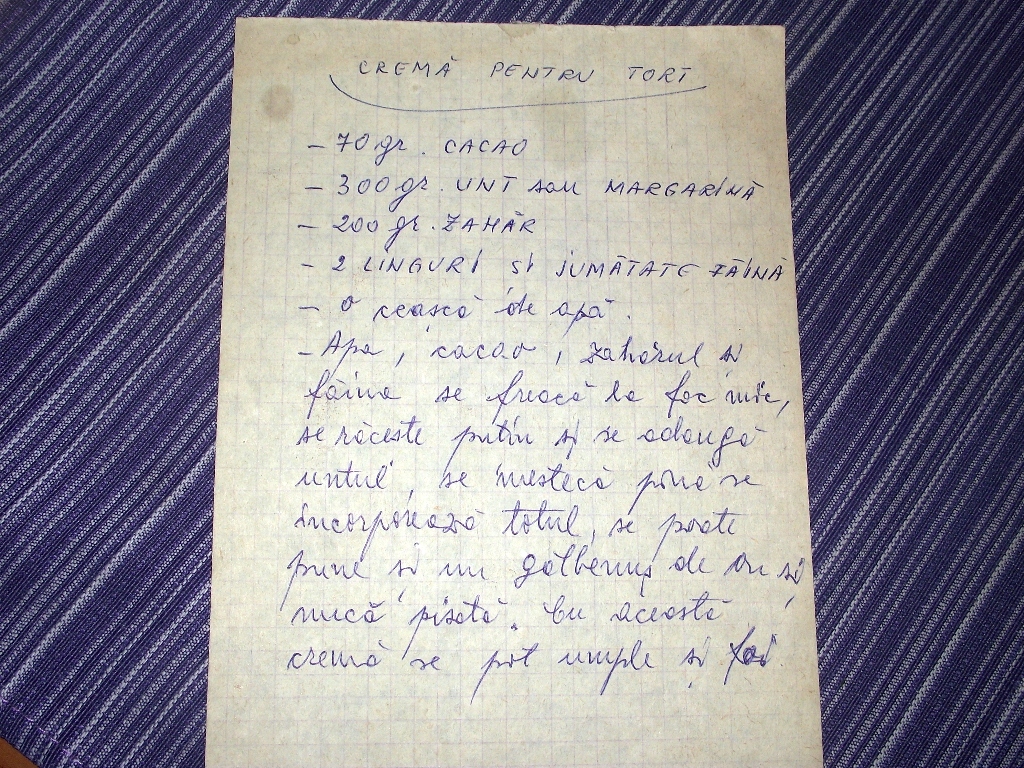 CREMĂ PENTRU TORT
- 70 gr. CACAO
- 300 gr. UNT sau MARGARINĂ
- 200 gr. ZAHĂR
- 2 LINGURI ȘI JUMĂTATE FĂINĂ
- O ceașcă de apă.
- Apa, cacao, zahărul și
făina se freacă la foc mic,
se răcește puțin și se adaugă
untul, se mestecă pînă se
încorporează totul, se poate
pune și un gălbenuș de ou și
nucă pisată. Cu această
cremă se pot umple și foi